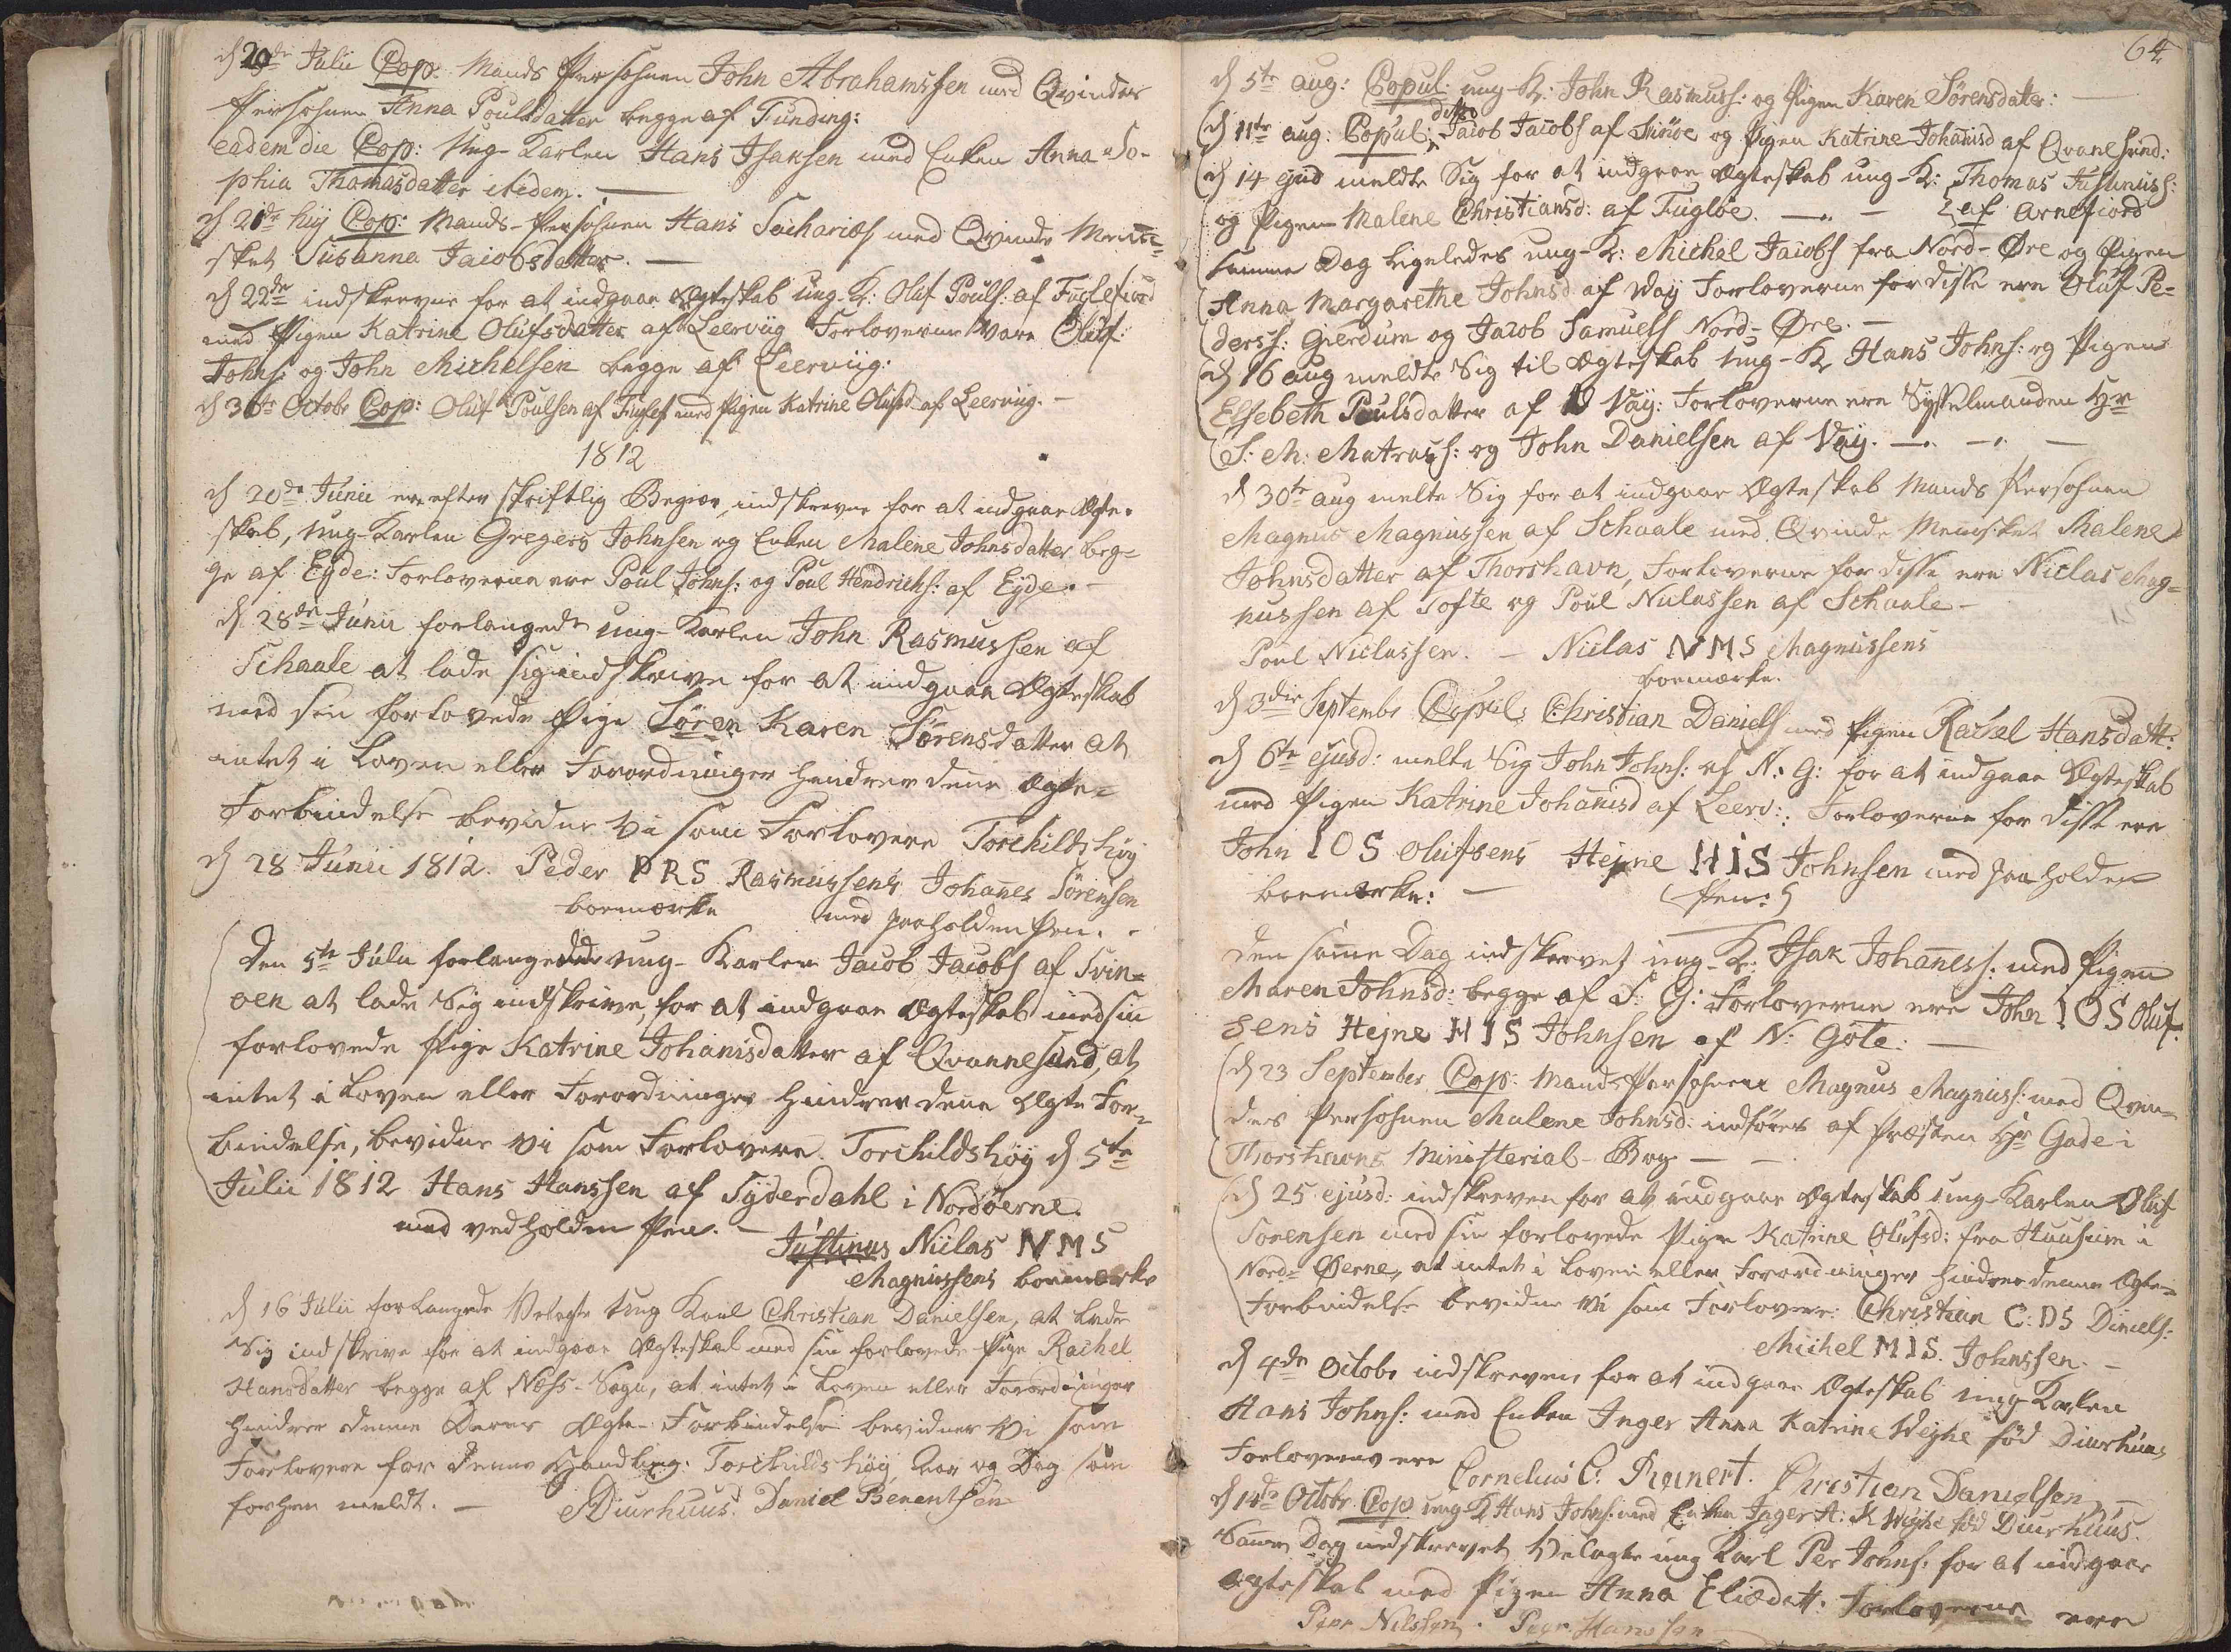 d 20de Julii Cop. Mands Persohnen John Abrahamssen med Qvindes
Persohnen Anna Poulsdatter begge af Funding:
eadem die Cop: Ung-Karlen Hans Isaksen med Enken Anna So-
phia Thomasdatter ibidem. —
d 21de huj Cop: Mands-Persohnen Hans Sachariæs med Qvinde Menne-
sket Susanna Jacobsdatter. —
d 22de indskrevne for at indgaae Ægteskab ung-K: Oluf Pouls: af Fuglefiord
med Pigen Katrine Olufsdatter af Leerviig Forloverne vare Oluf
Johns: og John Michelsen begge af Leerviig:
d 30te Octobr Cop: Oluf Poulsen af Fuglef med Pigen Katrine Olufsd af Leerviig. —
1812
d 20de Junii ere efter skriftlig Begiær, indskrevne for at indgaae Ægte-
skab, ung-Karlen Gregers Johnsen og Enken Malene Johnsdatter beg-
ge af Eyde: Forloverne ere Poul Johns: og Poul Hendrichs: af Eyde. —
d 28de Junii forlangede ung-Karlen John Rasmussen af
Schaale at lade sig indskrive for at indgaae Ægteskab
med sin forlovede Pige Søren Karen Sørensdatter at
intet i Loven eller Forordninger hindrer denne Ægte-
Forbindelse bevidne vi som Forlovere Torchildshøy
d 28 Junii 1812. Peder PRS Rasmussens Johannes Sørensen
boemærke med paaholden Pen. —
Den 5te Julii forlangede ung-Karlen Jacob Jacobs af Svin-
oen at lade Sig indskrive, for at indgaae Ægteskab med sin
forlovede Pige Katrine Johanisdatter af Qvannesund, at
intet i Loven eller Forordninger hindrer denne Ægte For-
bindelse, bevidne vi som Forlovere. Torchildshøy d 5te
Julii 1812 Hans Hanssen af Syderdahl i Nordøerne.
med vedholden Pen. — Justinus Niclas NMS
Magnussens boemærke
d 16 Julii forlangede Velagte Ung Karl Christian Danielsen, at lade
Sig indskrive for at indgaae Ægteskab med sin forlovede Pige Rachel
Hansdatter begge af Næss-Sogn, at intet i Loven eller Forordninger
hindrer denne Deres Ægte-Forbindelse bevidner vi som
Forlovere for denne Handling. Torchilds høy Aar og Dag som
forhen meldt. — Diurhuus. Daniel Benentsen
64
d 5te aug: Copul: ung-K: John Rasmuss: og Pigen Karen Sørensdatter: —
d 11te aug: Copul: ditto Jacob Jacobs af Svinoe og Pigen Katrine Johanisd af Qvanesund:
d 14 ejusd meldte Sig for at indgaae Ægteskab ung-K: Thomas Justinuss:
og Pigen Malene Christiansd: af Fugløe. — af Arnefiord
Samme Dag ligeledes ung-K: Michal Jacobs fra Nord-Øre og Pigen
Anna Margarethe Johnsd af Way Forloverne for disse ere Oluf Pe-
derss: Gierdum og Jacob Samuels Nord-Øre. —
d 16 aug meldte Sig til Ægteskab ung-K Hans Johns: og Pigen
Elsebeth Poulsdatter af Vaÿ: Forloverne ere Sysselmanden Hr
S: M: Matrass: og John Danielsen af Vaÿ. —
d 30te aug melte Sig for at indgaae Ægteskab Mands Persohnen
Magnus Magnussen af Schaale med Qvinde Mennsket Malene
Johnsdatter af Thorshavn, Forloverne for disse ere Niclas Mag-
nussen af Tofte og Poul Niclassen af Schaale —
Poul Niclassen. — Niclas NMS Magnussens
boemærke.
d 3die Septembr Copul: Christian Daniels med Pigen Rachel Hansdatt:
d 6te ejusd: melte Sig John Johns: af N: G: for at indgaae Ægteskab
med Pigen Katrine Johanisd af Leerv: Forloverne for disse ere
John IOS Olufsens Hejne HIS Johnsen med paaholden
boemærke: — Pen:
den samme Dag indskrevet ung-K: Isak Johaness: med Pigen
Maren Johnsd: begge af S: G: Forloverne ere John IOS Oluf-
sens Hejne HIS Johnsen af N: Gote: —
d 23 September Cop: Mands Persohnen Magnus Magnuss: med Qvin-
des Persohnen Malene Johnsd: indføres af Præsten Hr Gade i
Thorshavns Ministerial-Bog —
d 25 ejusd: indskreven for at indgaae Ægteskab ung-Karlen Oluf
Sorensen med sin forlovede Pige Katrine Olufsd: fra Huusum i
Nord-Øerne, at intet i Loven eller Forordninger hindrer denne Ægte-
forbindelse bevidne vi som Forlovere: Christian C:DS Daniels:
Michel MIS. Johnssen. —
d 4de Octobr indskreven, for at indgaae Ægteskab ung Karlen
Hans Johns: med Enken Inger Anna Katrine Weyhe fød Diurhuus,
Forloverne ere Cornelius C: Reinert. Christian Danielsen —
d 14de Octobr Cop ung K Hans Johns: med Enken Inger A: K Weyhe fød Diurhuus.
Samme Dag indskrevet Velagte ung Karl Per Johns: for at indgaae
Ægteskab med Pigen Anna Eliædatt: Forloverne ere
Peer Nilssen. Peer Hanssen